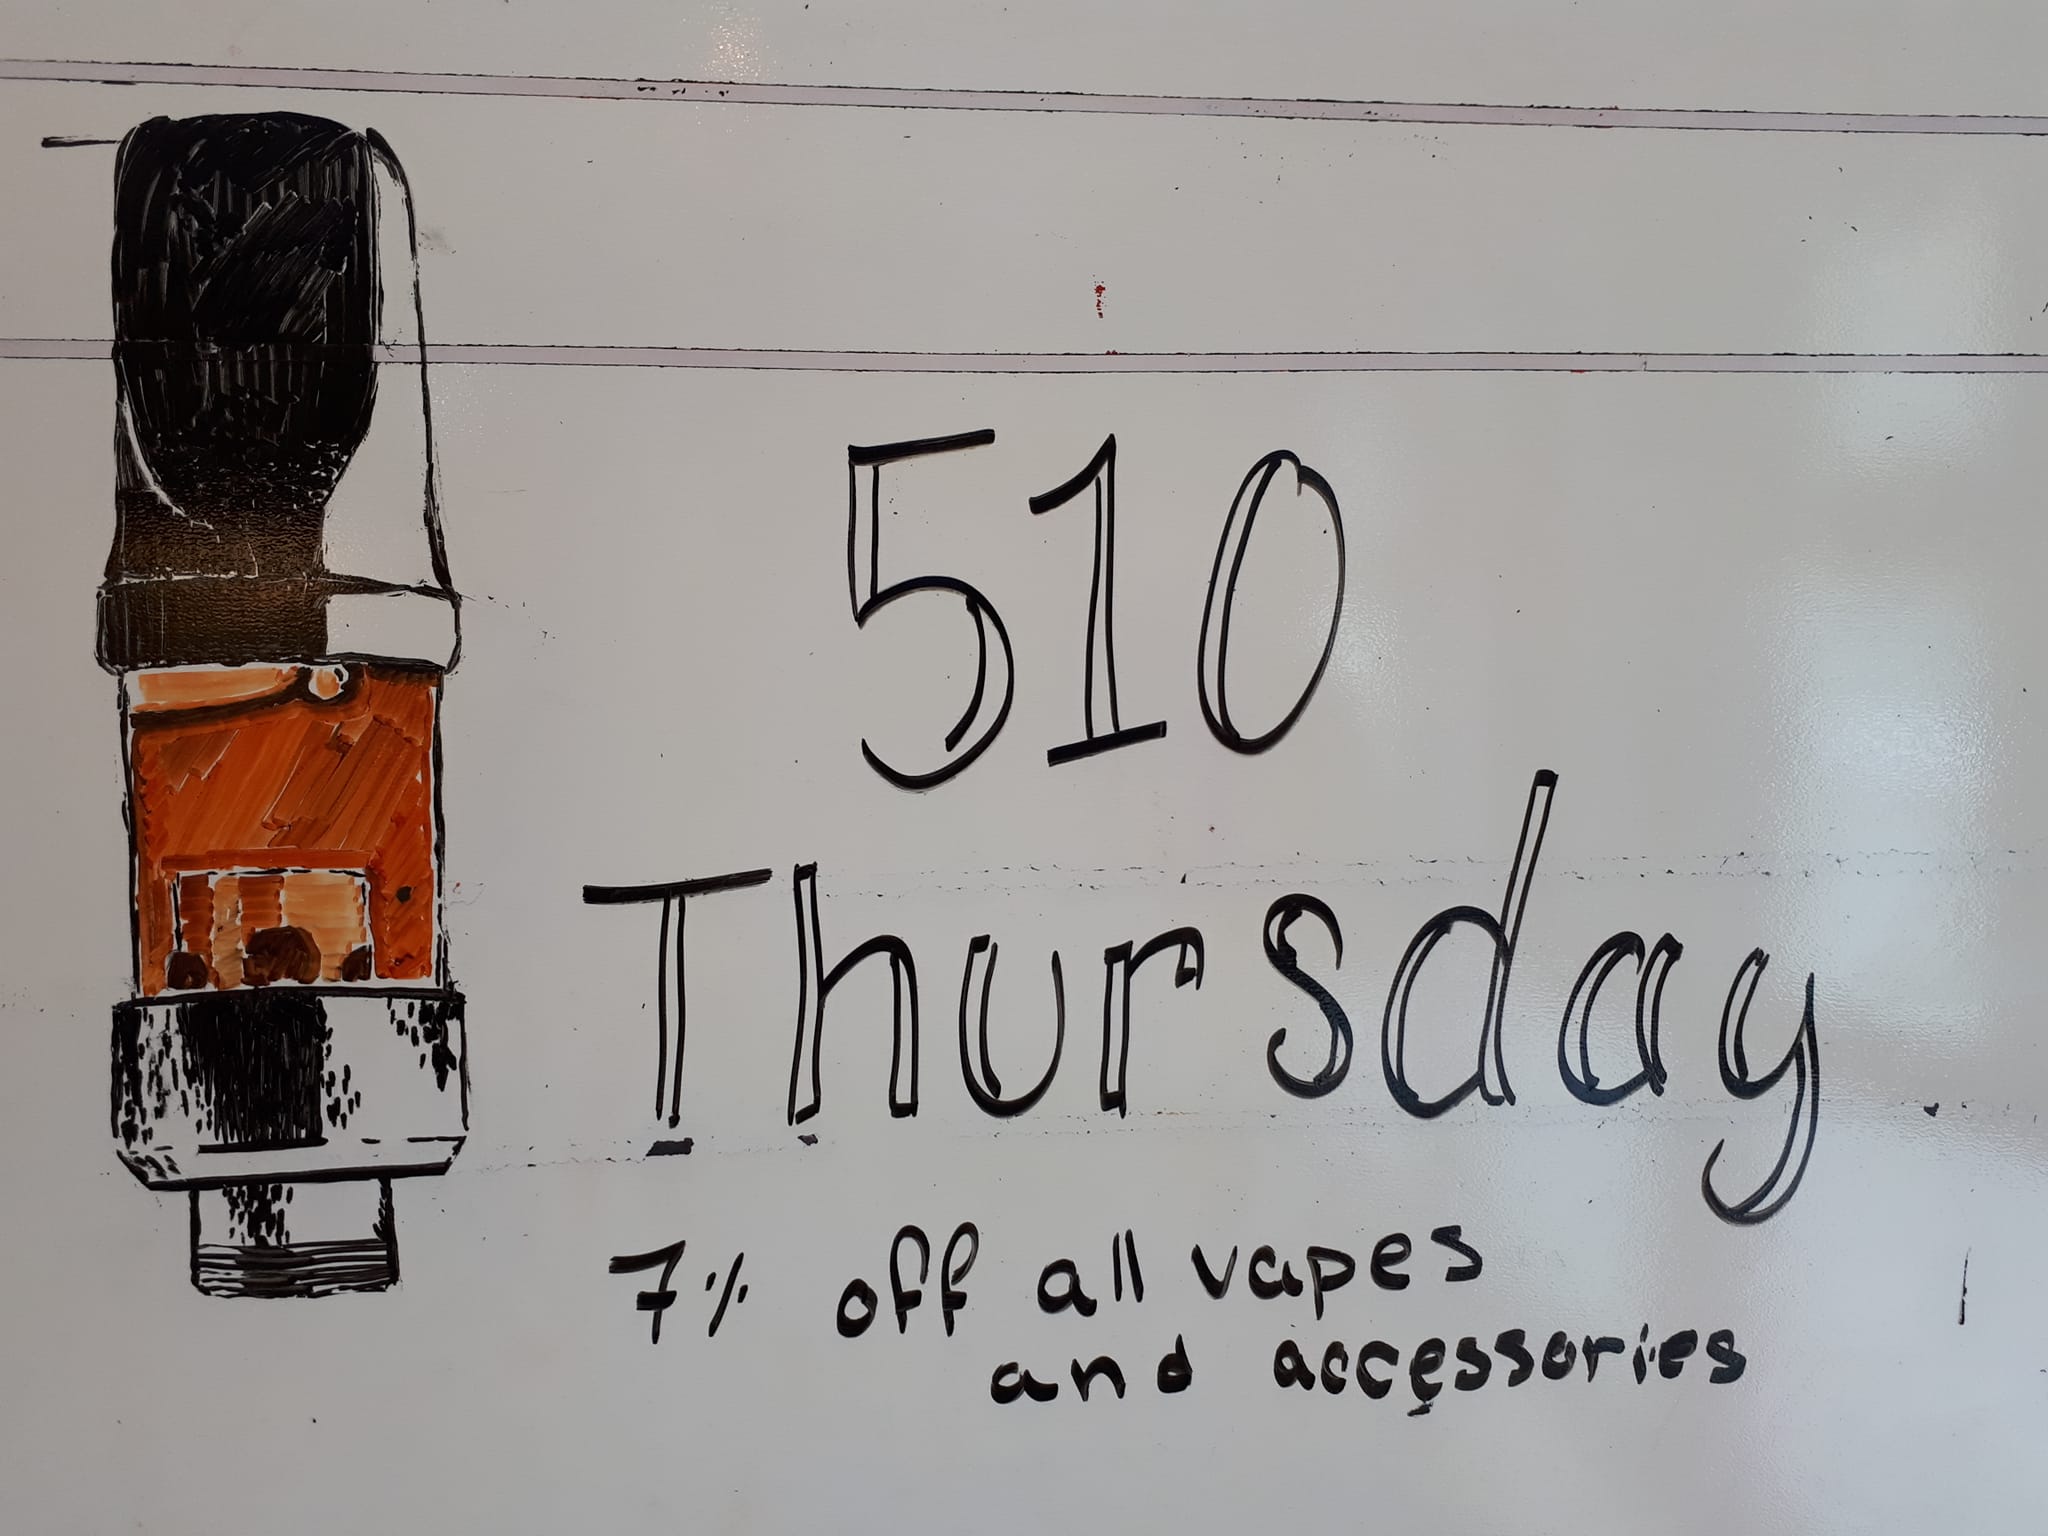 510
Thursday
7% off all vapes
and accessories